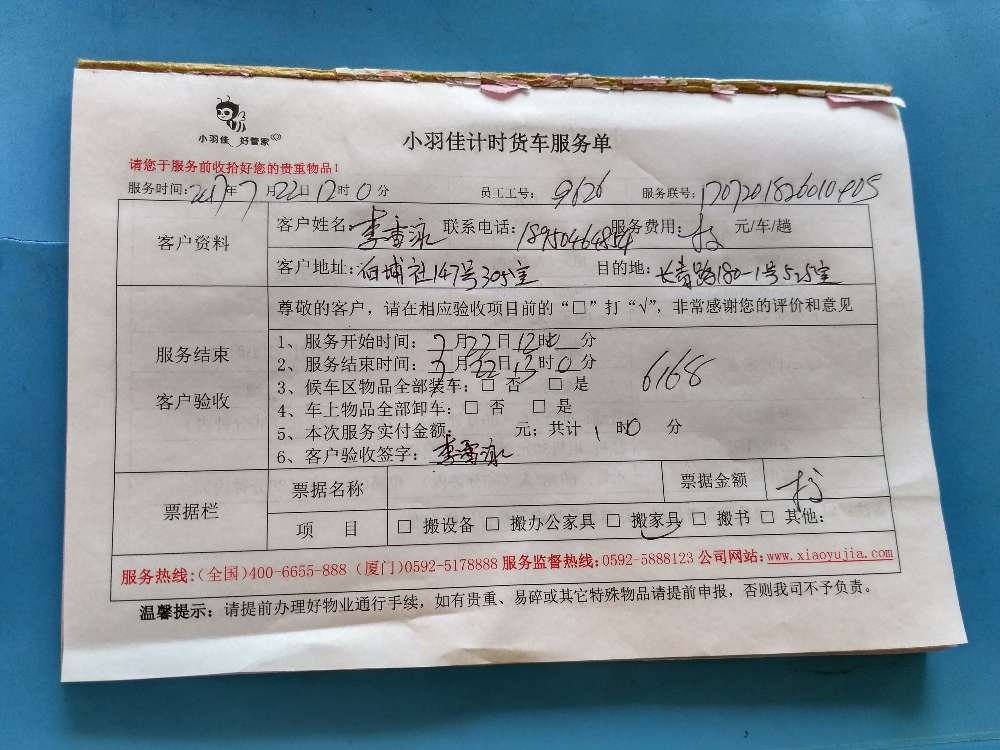 小羽佳 好管家
小羽佳计时货车服务单
请您于服务前收拾好您的贵重物品!
服务时间: 2017年7月22日12时0分 员工工号: 9626 服务联号: 1707201826010405
客户资料
客户姓名: 李雪泳 联系电话: 18950464854 服务费用: 元/车/趟
客户地址: 白埔社147号305室 目的地: 长青路180-1号525室
尊敬的客户,请在相应验收项目前的“□”打“√”,非常感谢您的评价和意见
服务结束
客户验收
1、服务开始时间: 7月22日12时0分
2、服务结束时间: 7月22日13时0分
6168
3、候车区物品全部装车: □ 否 □ 是
4、车上物品全部卸车: □ 否 □ 是
5、本次服务实付金额: 元; 共计 1 时0 分
6、客户验收签字: 李雪泳
票据栏
票据名称 票据金额
项 目 □ 搬设备 □ 搬办公家具 □ 搬家具 □ 搬书 □ 其他:
服务热线:(全国)400-6655-888 (厦门)0592-5178888 服务监督热线:0592-5888123 公司网站:www.xiaoyujia.com
温馨提示: 请提前办理好物业通行手续, 如有贵重、易碎或其它特殊物品请提前申报, 否则我司不予负责。